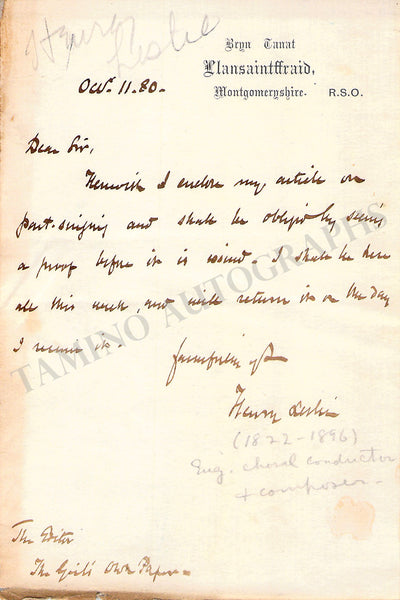 Henry
Leslie
Bryn Tanat
Llansaintffraid,
Montgomeryshire. R.S.O.
Oct. 11. 80.
Dear Sir,
Herewith I enclose my article on
part-singing and shall be obliged by seeing
a proof before it is issued. I shall be here
all this week, and will return it on the day
I receive it.
faithfully yrs
Henry Leslie
(1822-1896)
Eng. choral conductor
+ composer
The Editor
The Girl's Own Paper
TAMINO AUTOGRAPHS